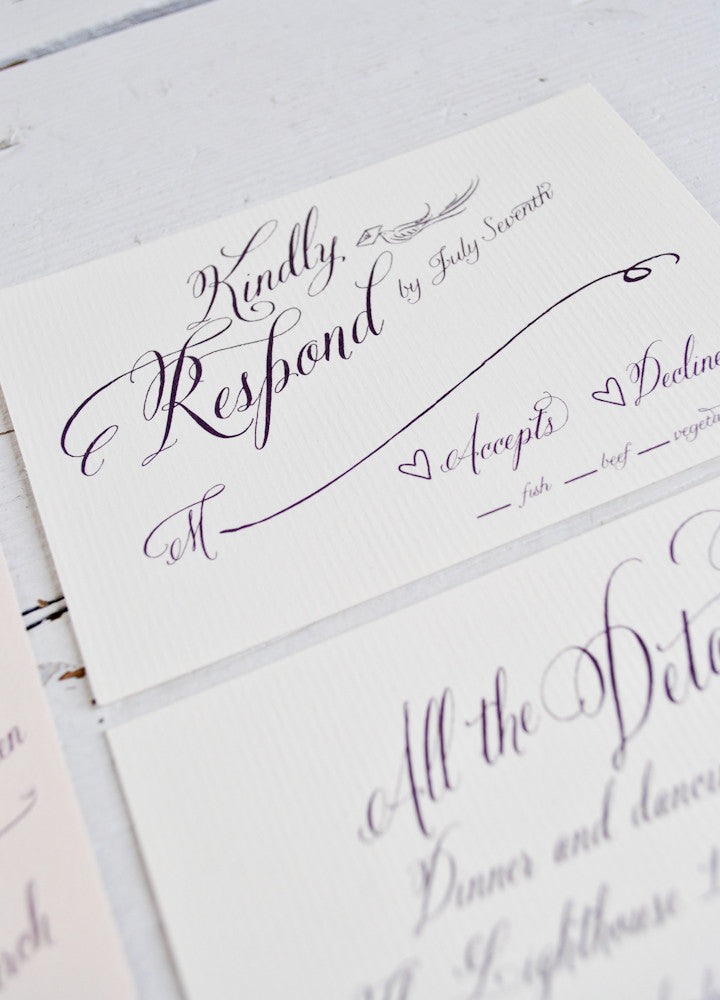 Kindly
Respond by July Seventh
M
Accepts Decline
fish beef
All the
Dinner and
Lighthouse